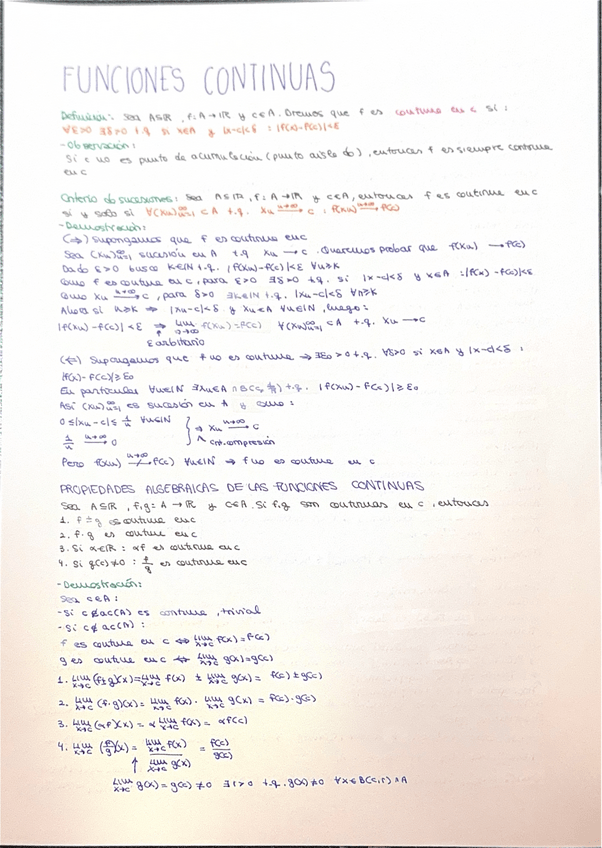 FUNCIONES CONTINUAS
Definición: Sea A⊆ℝ, f:A→ℝ y c∈A. Diremos que f es continua en c si:
∀ε>0 ∃δ>0 t.q. si x∈A y |x-c|<δ : |f(x)-f(c)|<ε
-Observación:
Si c no es punto de acumulación (punto aislado), entonces f es siempre continua
en c
Criterio de sucesiones: Sea A⊆ℝ, f:A→ℝ y c∈A, entonces f es continua en c
si y solo si ∀(xn)∞n=1 ⊂ A t.q. xn n→∞→ c : f(xn) n→∞→ f(c)
-Demostración:
(⇒) Supongamos que f es continua en c
Sea (xn)∞n=1 sucesión en A t.q. xn → c. Queremos probar que f(xn) → f(c)
Dado ε>0 busco K∈ℕ t.q. |f(xn)-f(c)|<ε ∀n≥K
Como f es continua en c, para ε>0 ∃δ>0 t.q. si |x-c|<δ y x∈A : |f(x)-f(c)|<ε
Como xn n→∞→ c, para δ>0 ∃K∈ℕ t.q. |xn-c|<δ ∀n≥K
Ahora si n≥K ⇒ |xn-c|<δ y xn∈A ∀n∈ℕ, luego:
|f(xn)-f(c)|<ε ⇒ lim n→∞ f(xn)=f(c) ∀(xn)∞n=1 ⊂ A t.q. xn → c
ε arbitrario
(⇐) Supongamos que f no es continua ⇒ ∃ε0>0 t.q. ∀δ>0 si x∈A y |x-c|<δ :
|f(x)-f(c)|≥ε0
En particular ∀n∈ℕ ∃xn∈A∩B(c, 1/n) t.q. |f(xn)-f(c)|≥ε0
Así (xn)∞n=1 es sucesión en A y como:
0≤|xn-c|≤ 1/n ∀n∈ℕ } ⇒ xn n→∞→ c
1/n n→∞→ 0 Crit. compresión
Pero f(xn) n→∞↛ f(c) ∀n∈ℕ ⇒ f no es continua en c
PROPIEDADES ALGEBRAICAS DE LAS FUNCIONES CONTINUAS
Sea A⊆ℝ, f,g:A→ℝ y c∈A. Si f,g son continuas en c, entonces
1. f±g es continua en c
2. f·g es continua en c
3. Si α∈ℝ : αf es continua en c
4. Si g(c)≠0 : f/g es continua en c
-Demostración:
Sea c∈A:
-Si c∉ac(A) es continua, trivial
-Si c∉ac(A) :
f es continua en c ⇔ lim x→c f(x)=f(c)
g es continua en c ⇔ lim x→c g(x)=g(c)
1. lim x→c (f±g)(x)= lim x→c f(x) ± lim x→c g(x) = f(c)±g(c)
2. lim x→c (f·g)(x)= lim x→c f(x) · lim x→c g(x) = f(c)·g(c)
3. lim x→c (αf)(x) = α lim x→c f(x) = αf(c)
4. lim x→c (f/g)(x) = lim x→c f(x) / lim x→c g(x) = f(c)/g(c)
↑
lim x→c g(x)=g(c)≠0 ∃r>0 t.q. g(x)≠0 ∀x∈B(c,r)∩A